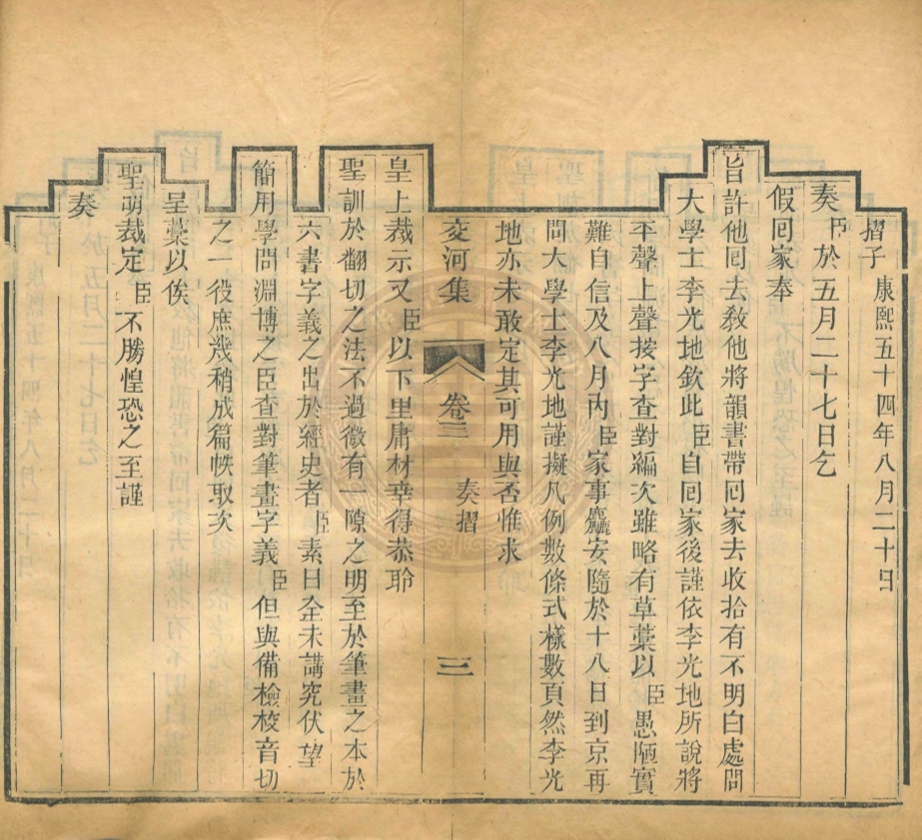 摺子 康熙五十四年八月二十日
奏臣於五月二十七日乞
假回家奉
旨許他回去教他將韻書帶回家去收拾有不明白處問
大學士李光地欽此臣自回家後謹依李光地所說將
平聲上聲按字查對編次雖略有草藁以臣愚陋實
難自信及八月內臣家事麤安隨於十八日到京再
問大學士李光地謹擬凡例數條式樣數頁然李光
地亦未敢定其可用與否惟求
交河集 卷三 奏摺 三
皇上裁示又臣以下里庸材幸得恭聆
聖訓於翻切之法不過微有一隙之明至於筆畫之本於
六書字義之出於經史者臣素日全未講究伏望
簡用學問淵博之臣查對筆畫字義臣但與備檢校音切
之一役庶幾稍成篇帙取次
呈藁以俟
聖明裁定臣不勝惶恐之至謹
奏